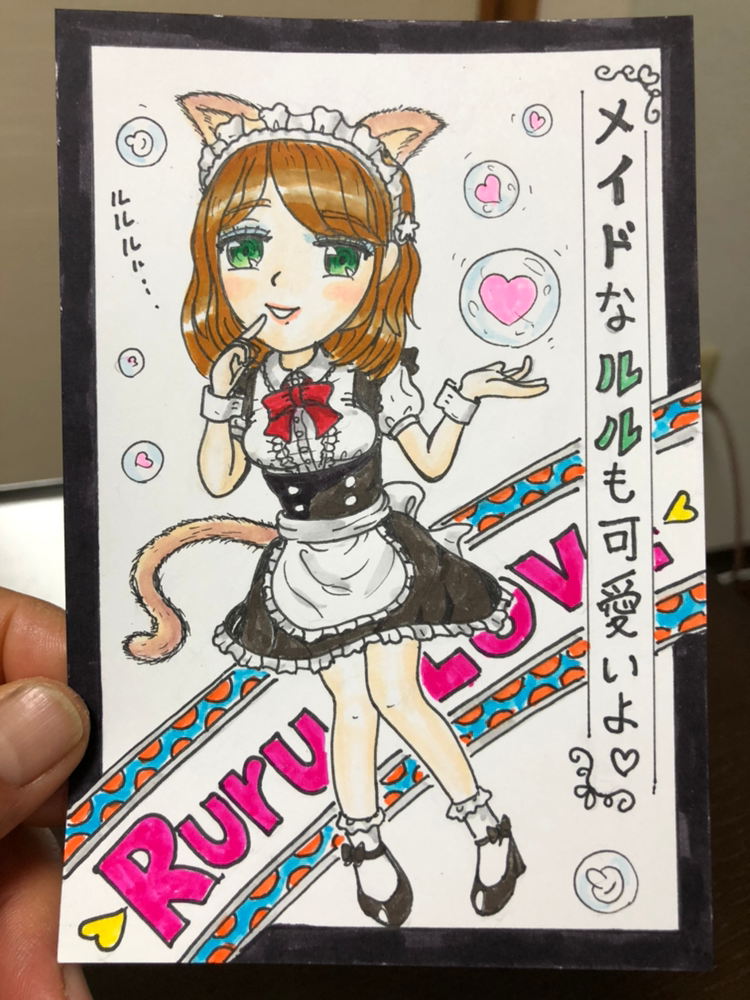 メイドなルルも可愛いよ♡
ルルルル…
Ruru LOVE